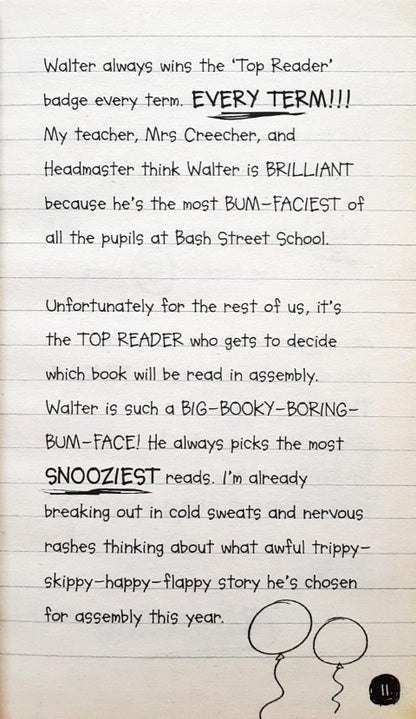 Walter always wins the 'Top Reader'
badge every term. EVERY TERM!!!
My teacher, Mrs Creecher, and
Headmaster think Walter is BRILLIANT
because he's the most BUM-FACIEST of
all the pupils at Bash Street School.
Unfortunately for the rest of us, it's
the TOP READER who gets to decide
which book will be read in assembly.
Walter is such a BIG-BOOKY-BORING-
BUM-FACE! He always picks the most
SNOOZIEST reads. I'm already
breaking out in cold sweats and nervous
rashes thinking about what awful trippy-
skippy-happy-flappy story he's chosen
for assembly this year.
11